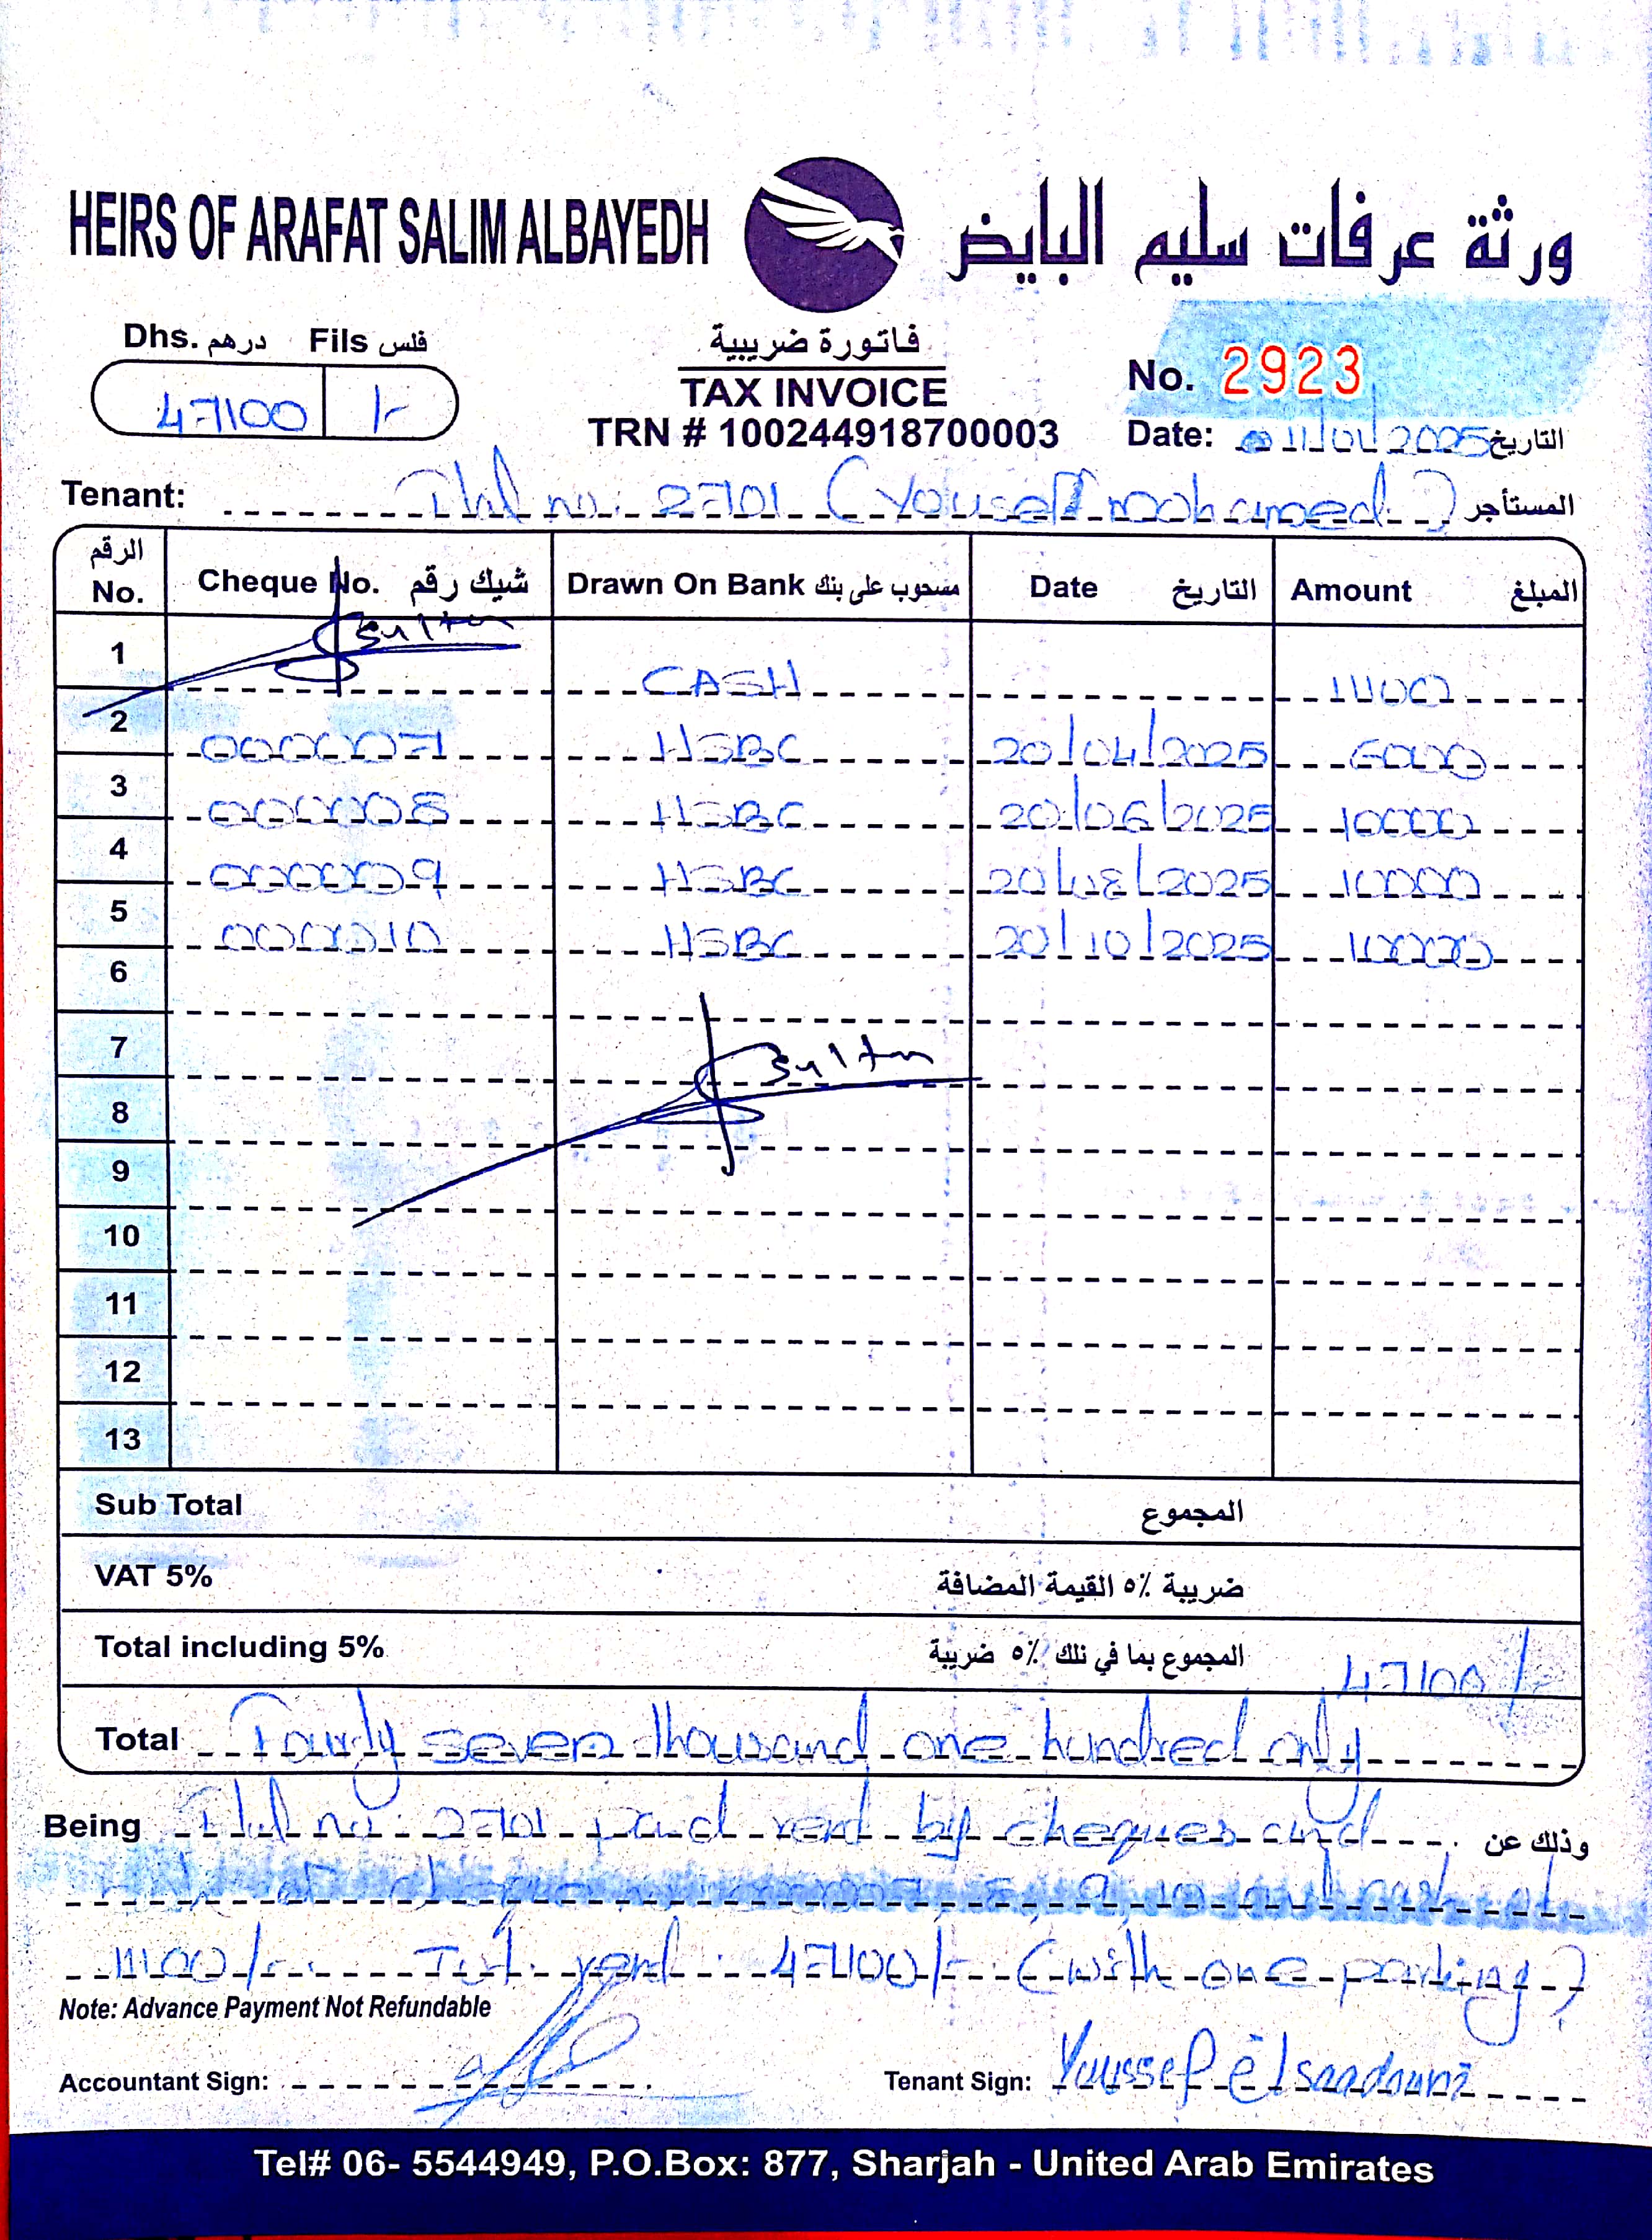 HEIRS OF ARAFAT SALIM ALBAYEDH ورثة عرفات سليم البايض
Dhs. درهم Fils فلس
47100 /-
فاتورة ضريبية
TAX INVOICE
TRN # 100244918700003
No. 2923
Date: 11/01/2025 التاريخ
Tenant: Flat no. 2701 (Yousef mohamed.) المستأجر
الرقم No. Cheque No. شيك رقم Drawn On Bank مسحوب على بنك Date التاريخ Amount المبلغ
Sultan
1 CASH
2 000007 HSBC 20/04/2025 6000
3 000008 HSBC 20/06/2025 10000
4 000009 HSBC 20/08/2025 10000
5 000010 HSBC 20/10/2025 10000
6
7 Sultan
8
9
10
11
12
13
Sub Total المجموع
VAT 5% ضريبة ٥٪ القيمة المضافة
Total including 5% المجموع بما في ذلك ٥٪ ضريبة 47100/-
Total Fourty seven thousand one hundred only
Being Flat no. 2701 paid rent by cheques and وذلك عن
11100/- Tot. rent : 47100/- (with one parking)
Note: Advance Payment Not Refundable
Accountant Sign: Tenant Sign: Youssef elsaadouni
Tel# 06- 5544949, P.O.Box: 877, Sharjah - United Arab Emirates